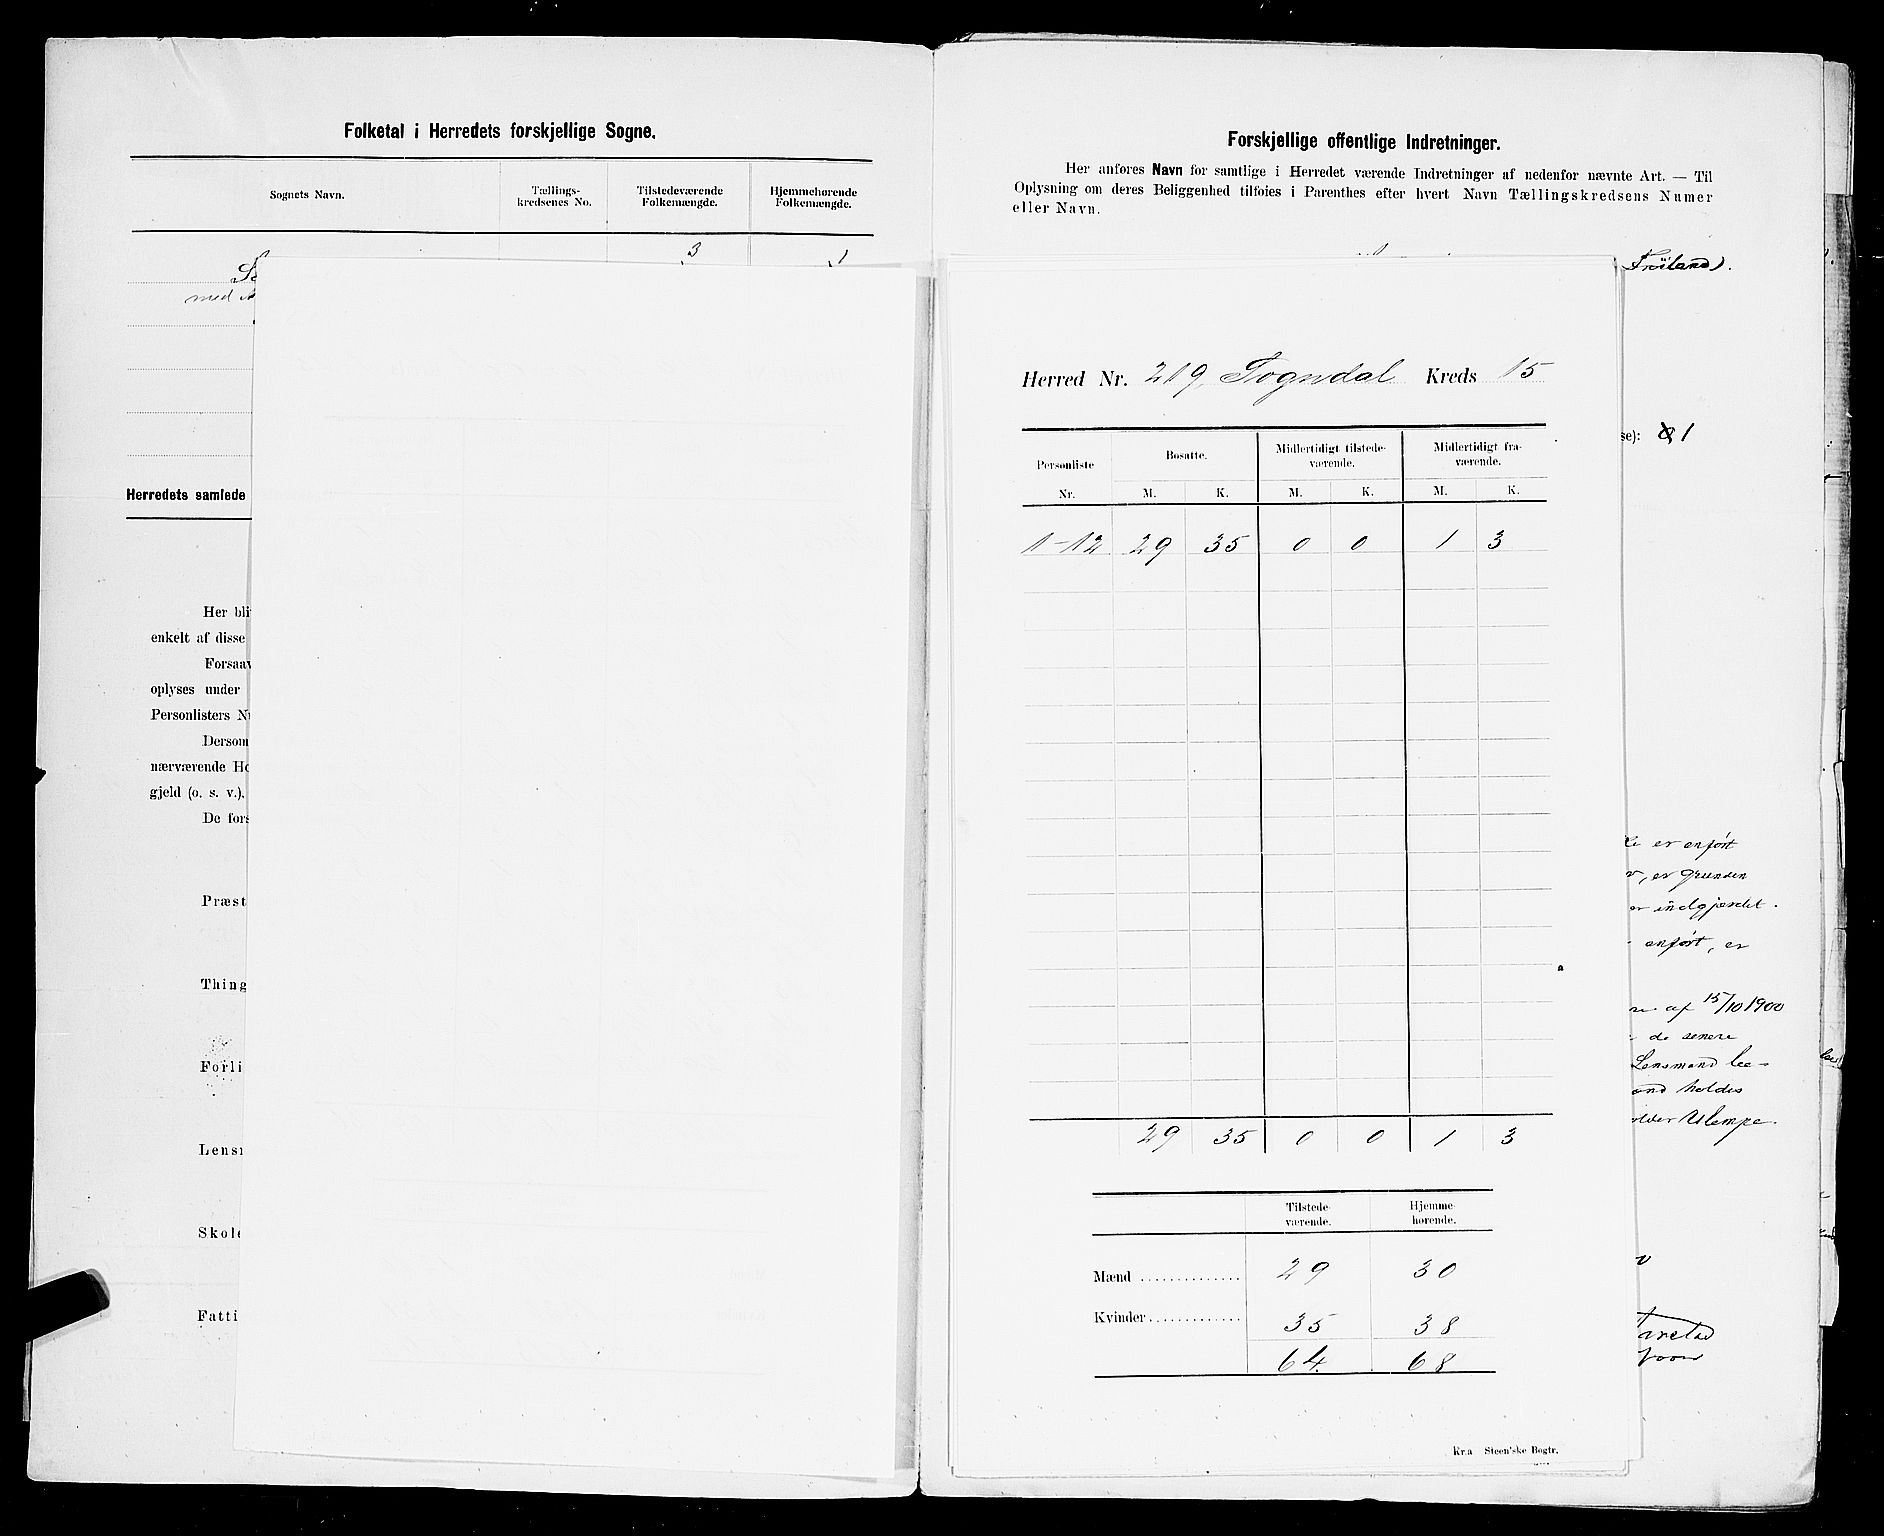 Folketal i Herredets forskjellige Sogne.
Sognets Navn.
Tællings-
kredsenes No.
Tilstedeværende
Folkemængde.
Hjemmehørende
Folkemængde.
3
1
med
Herredets samlede
Her bli
enkelt af disse
Forsaav
oplyses under
Personlisters N
Dersom
nærværende He
gjeld (o. s. v.).
De fors
Præst
Thing
Forli
Lens
Skole
Fatti
Forskjellige offentlige Indretninger.
Her anføres Navn for samtlige i Herredet værende Indretninger af nedenfor nævnte Art. — Til
Oplysning om deres Beliggenhed tilføies i Parenthes efter hvert Navn Tællingskredsens Numer
eller Navn.
Frøiland).
se): 1
Herred Nr. 219, Sogndal Kreds 15
Personliste
Nr.
Bosatte.
M. K.
Midlertidigt tilstede-
værende.
M. K.
Midlertidigt fra-
værende.
M. K.
1-12 29 35 0 0 1 3
29 35 0 0 1 3
Tilstede-
værende.
Hjemme-
hørende.
Mænd 29 30
Kvinder 35 38
64. 68
Kr.a Steen'ske Bogtr.
er anført
, er Grunden
er indgjerdet.
anført, er
af 15/10 1900
de senere
Lensmand be-
and holdes
older Ulempe.